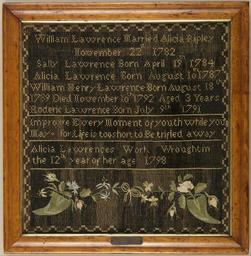 William Lawrence Married Alicia Ripley
November 22d 1782
Sally Lawrence Born April 19 1784
Alicia Lawrence Born August 10 1787
William Henry Lawrence Born August 18
1789 Died November 10 1792 Aged 3 Years
Lawrence Born July 9th 1791
Improve Every Moment of youth while you
May for Life is too short to Be trifled away
Alicia Lawrences Work Wrought in
the 12th year of her age 1798